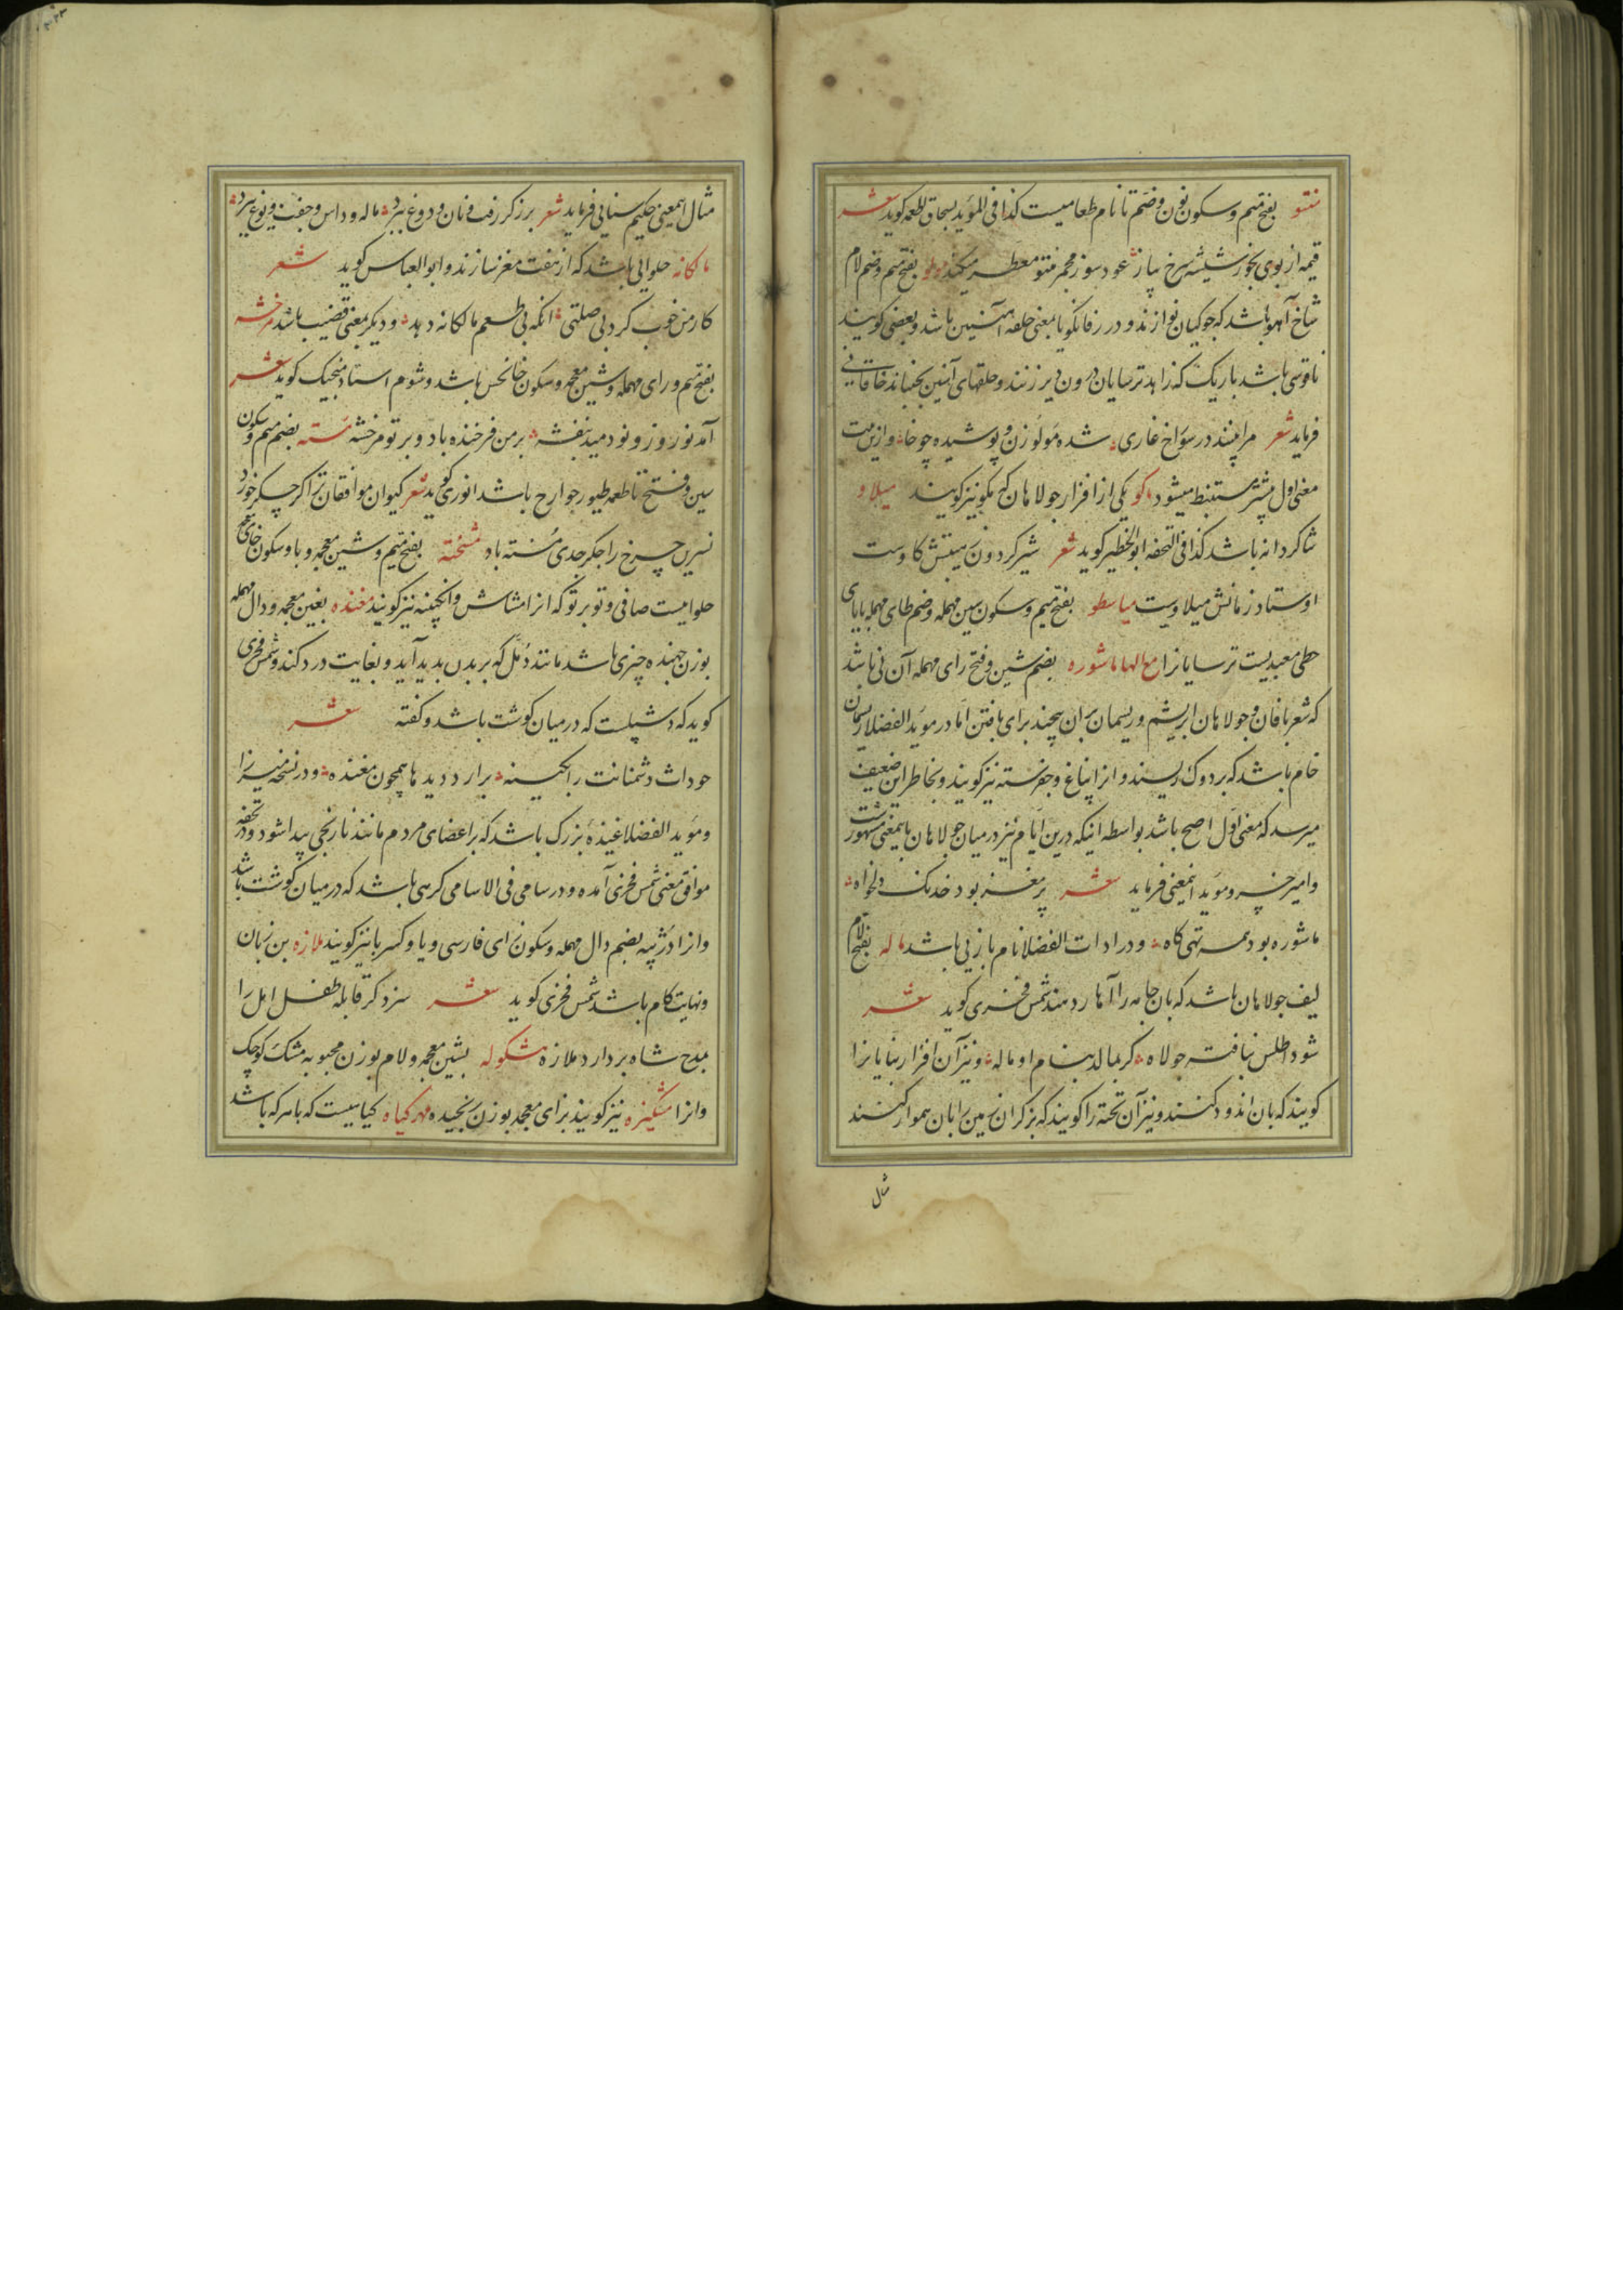 منتو بفتح میم و سکون نون و ضم تا نام طعامیست کذا فی المؤید بسحاق اطعمه کوید شعر
قیمه از بوی بخور شیشه سرخ پیاز عود سوز مجمر منتو معطر میکند مولو بفتح میم و ضم لام
شاخ آهو باشد که جوکیان نوازند و در زفانکویا بمعنی حلقه آهنین باشد و بعضی کویند
ناقوسی باشد باریک که زاهد ترسایان درون دیر زنند و حلقهای آهنین بجنبانند خاقانی
فرماید شعر مرا بینند در سوراخ غاری شده مولوزن و پوشیده چوخا و ازین بیت
معنی اول بیشتر مستنبط میشود ماکو یکی از افزار جولاهان که مکو نیز کویند میلاو
شاکردانه باشد کذا فی التحفه ابو الخطیر کوید شعر شیر کردون بیتش کاوست
اوستاد زمانش میلاویست میاسطو بفتح میم و سکون سین مهمله و ضم طای مهمله بایای
حطی معبدیست ترسایانرا مع الها ماشوره بضم شین و فتح رای مهمله آن نی باشد
که شعربافان و جولاهان ابریشم و ریسمان بران پیچند برای بافتن اما در موید الفضلا ریسمان
خام باشد که بر دوک ریسند و انرا بیناغ و جغرسته نیز کویند و بخاطر این ضعیف
میرسد که معنی اول اصح باشد بواسطه اینکه درین ایام نیز در میان جولاهان باینمعنی مشهور شت
و امیر خسرو موید اینمعنی فرماید شعر پر مغز بود خدنک دلخواه
ماشوره بود همه تهی کاه و در ادات الفضلا نام بازیی باشد ماله بفتح لام
لیف جولاهان باشد که بان جامه را آهار دهند شمس فخری کوید شعر
شود اطلس نبافته جولاه کر بمالد بنام او ماله و نیز آن افزار بنایانرا
کویند که بان اندود کنند و نیز آن تخته را کویند که بزرکران زمین را بان هموار کنند
مثال
مثال اینمعنی حکیم سنایی فرماید شعر برزکر رفت و نان و دوغ ببرد ماله و داس و جفت و یوغ ببرد
مالکانه حلوایی باشد که از هفت مغز سازند و ابو العباس کوید شعر
کار من خوب کرد بی صلتی انکه بی طعم مالکانه دهد و دیکر بمعنی قضیب باشد مرخشه
بفتح میم و رای مهمله و شین معجمه و سکون خا نحس باشد و شوم استاد منجیک کوید شعر
آمد نوروز و نو دمید بنفشه بر من فرخنده باد و بر تو مرخشه مسته بضم میم و سکون
سین و فتح تا طعمه طیور جوارح باشد انوری کوید شعر کیوان موافقان ترا کر جکر خورد
نسرین چرخ را جکر جدی مسته باد مشخته بفتح میم و شین معجمه و با و سکون خای معجمه
حلوایست صافی و توبرتو که انرا مشاش و انکبینه نیز کویند مغنده بغین معجمه و دال مهمله
بوزن جهنده چیزی باشد مانند دمل که بر بدن بدید آید و بغایت درد کند و شمس فخری
کوید که دشپلست که در میان کوشت باشد و کفته شعر
حوداث دشمنانت را بکینه برارد دیدها همچون مغنده و در نسخه میرزا
و موید الفضلا غنده بزرک باشد که بر اعضای مردم مانند نارنجی پیدا شود و در تحفه
موافق معنی شمس فخری آمده و در سامی فی الاسامی کرهی باشد که در میان کوشت باشد
و انرا دژپیه بضم دال مهمله و سکون زای فارسی و یا و کسر با نیز کویند ملازه بن زبان
و نهایت کام باشد شمس فخری کوید شعر سزد کر قابله طفل امل را
بمدح شاه بردارد ملازه مشکوله بشین معجمه و لام بوزن محبوبه مشک کوچک
و انرا مشکیزه نیز کویند بزای معجمه بوزن رنجیده مهر کیاه کیاییست که با هر که باشد